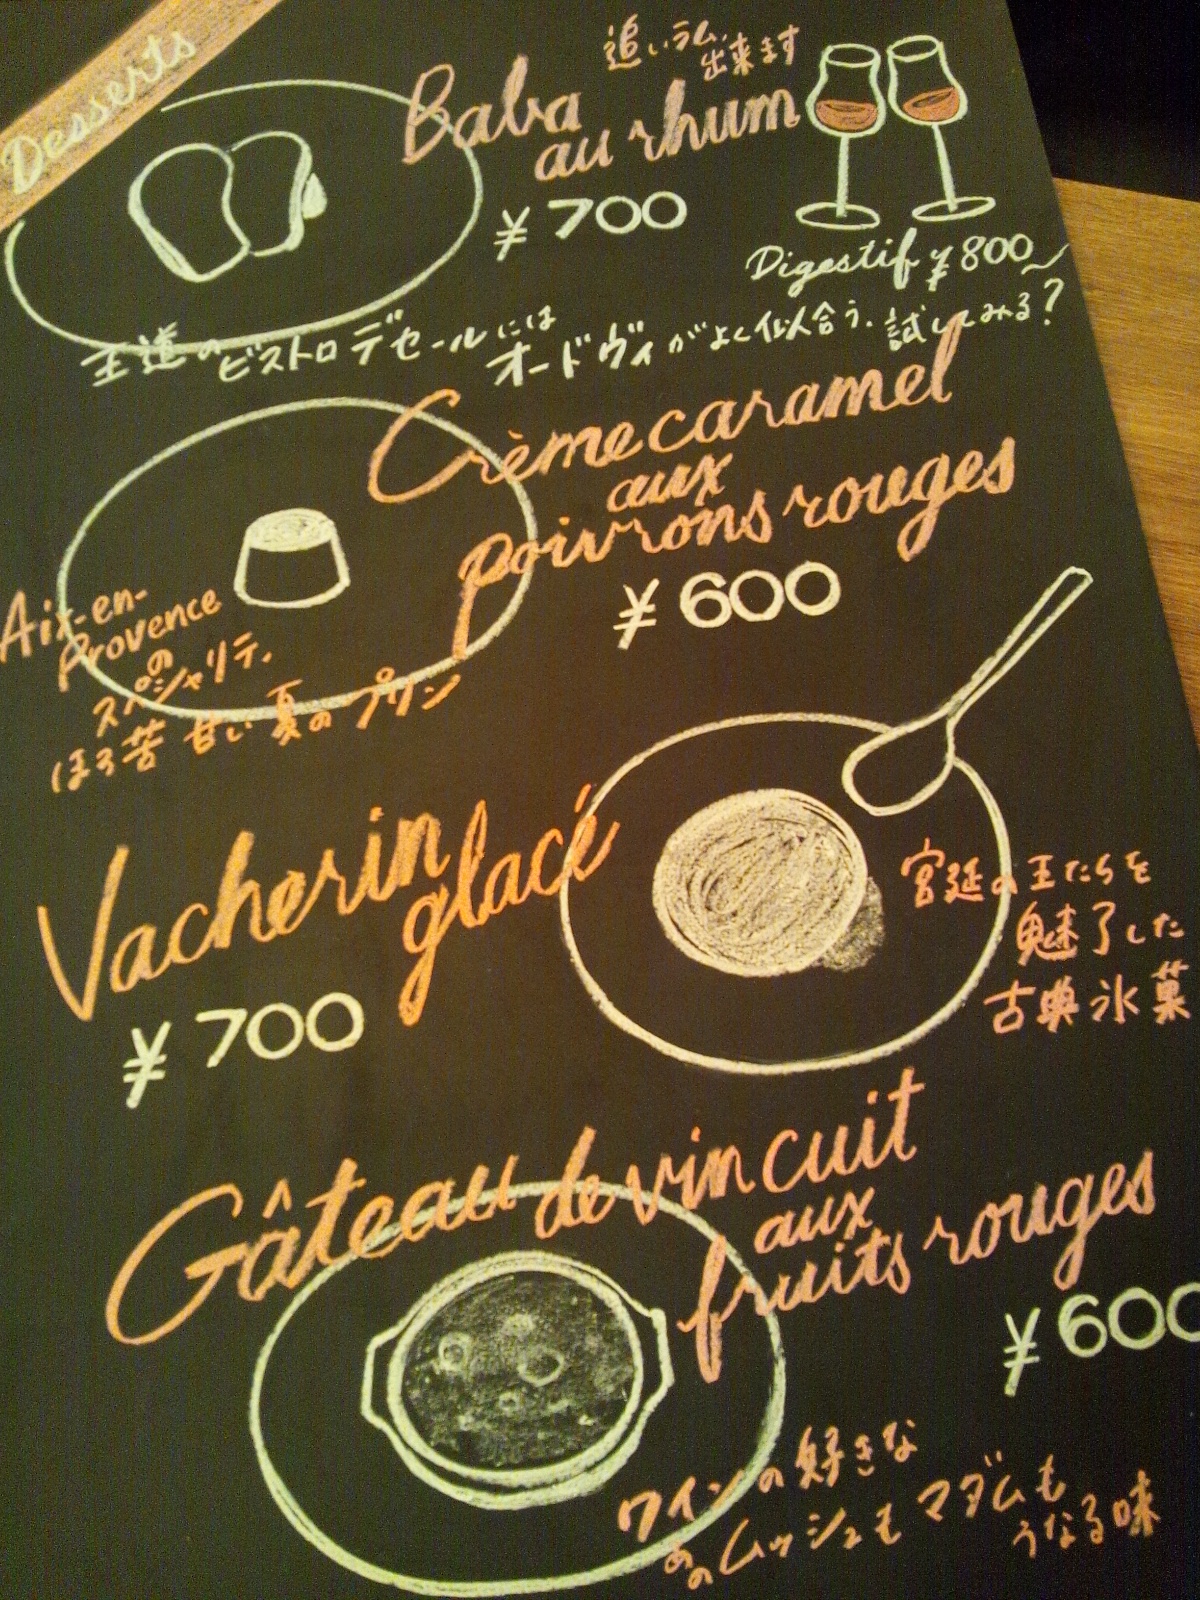 Desserts
追いラム
出来ます
Baba
au rhum
¥700
Digestif ¥800~
王道のビストロデセールには
オードヴィがよく似合う。試してみる?
Crème caramel
aux
poivrons rouges
¥600
Aix-en-
Provence
の
スペシャリテ。
ほろ苦甘い夏のプリン
Vacherin
glacé
¥700
宮廷の王たちを
魅了した
古典氷菓
Gâteau de vin cuit
aux
fruits rouges
¥600
ワインの好きな
ムッシュも マダムも
うなる味